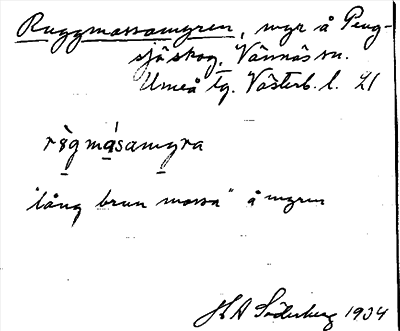 Ruggmossamyren, myr å Peng-
sjö skog, Vännäs sn.
Umeå tg. Västerb. l. 21
"lång brun mossa" å myren
H A Söderberg 1934